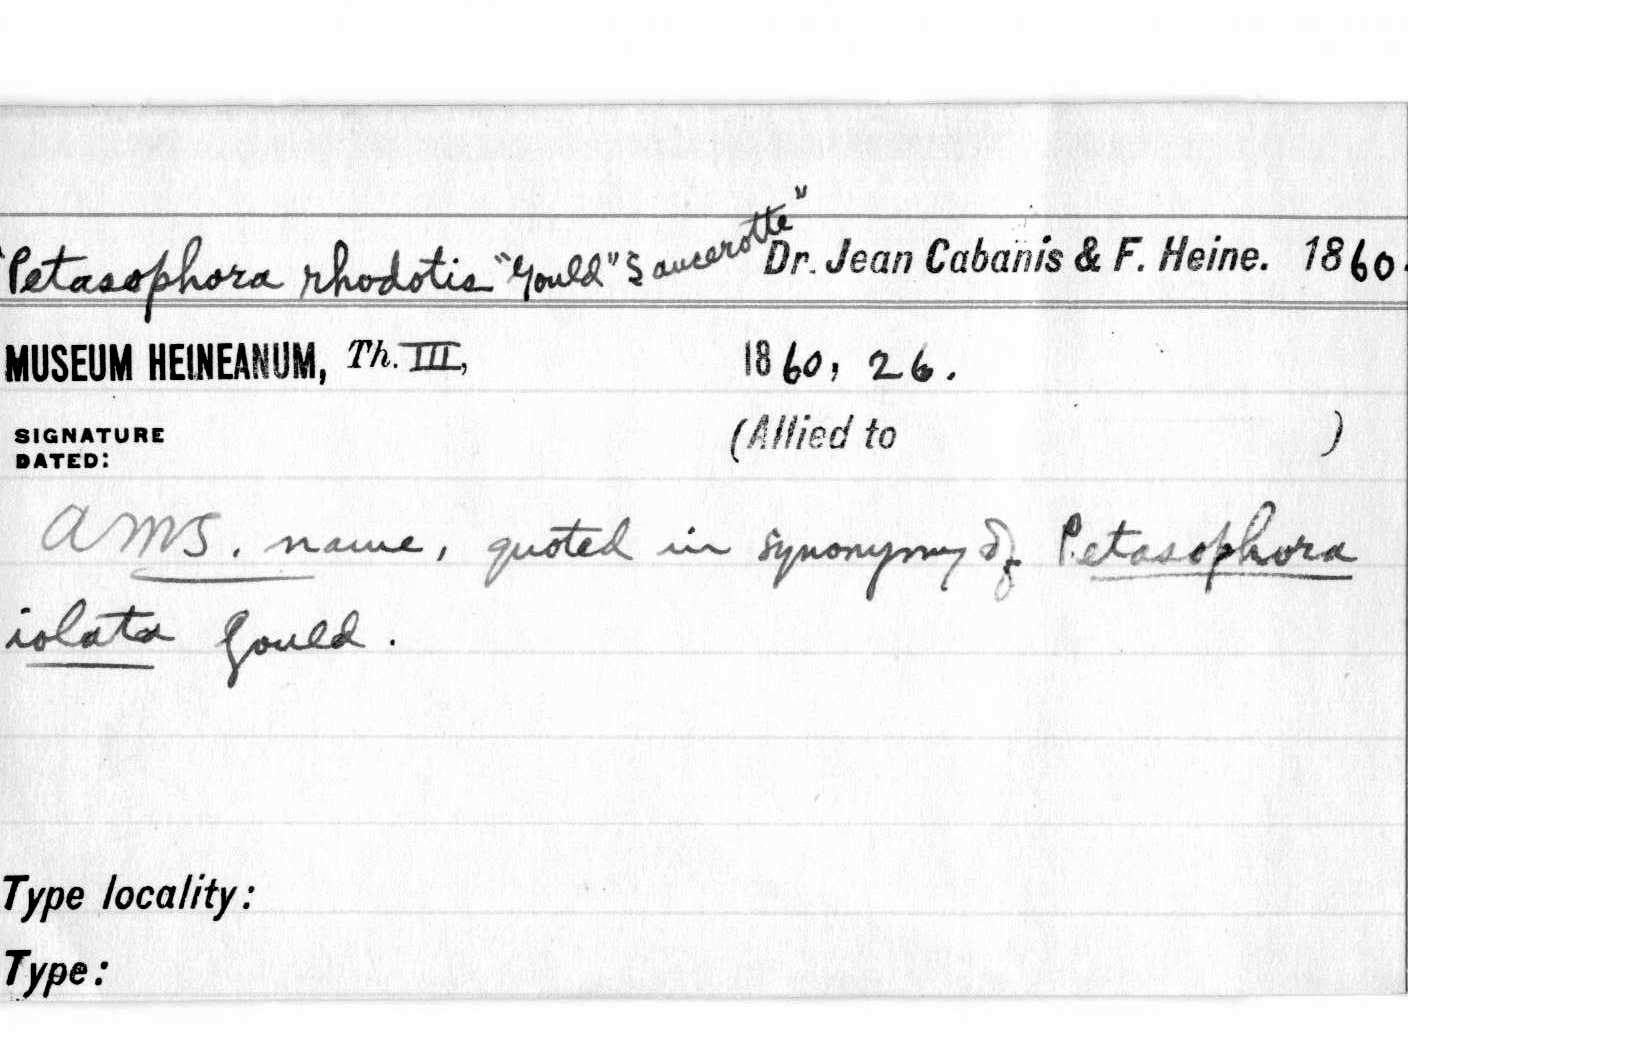 "Petasophora rhodotis "Gould" Saucerotte" Dr. Jean Cabanis & F. Heine. 1860.
MUSEUM HEINEANUM, Th. III, 1860, 26.
SIGNATURE
DATED:
(Allied to )
A MS. name, quoted in synonymy of Petasophora
iolata Gould.
Type locality:
Type: